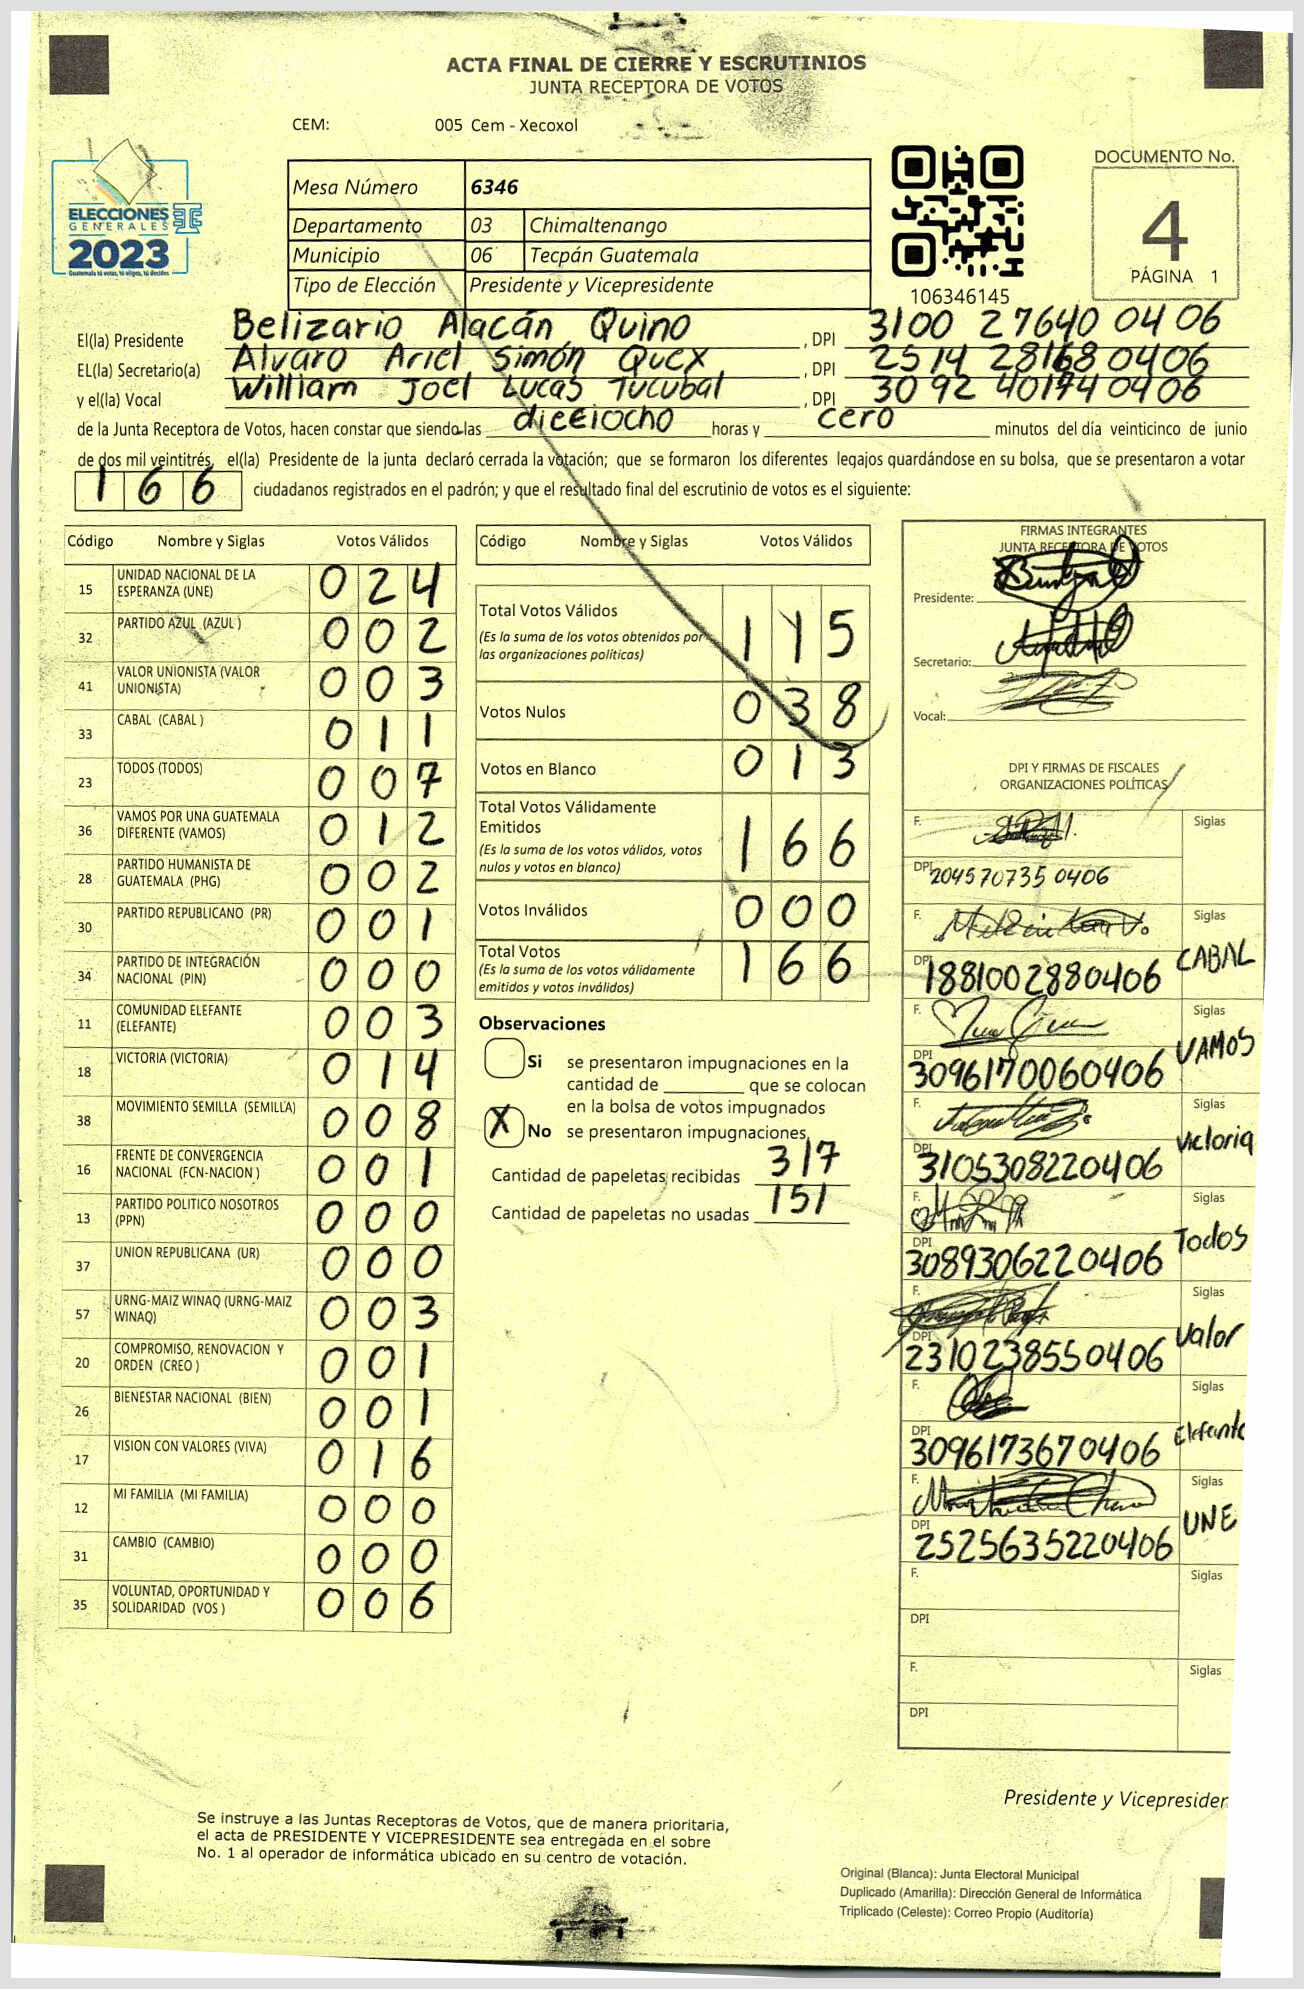 ACTA FINAL DE CIERRE Y ESCRUTINIOS
JUNTA RECEPTORA DE VOTOS
CEM: 005 Cem - Xecoxol
ELECCIONES
GENERALES
2023
Guatemala tú votas, tú eliges, tú decides
Mesa Número 6346
Departamento 03 Chimaltenango
Municipio 06 Tecpán Guatemala
Tipo de Elección Presidente y Vicepresidente
106346145
DOCUMENTO No.
4
PÁGINA 1
El(la) Presidente Belizario Alacán Quino, DPI 3100 27640 04 06
EL(la) Secretario(a) Alvaro Ariel Simón Quex, DPI 2514 28168 0406
y el(la) Vocal William Joel Lucas Tucubal, DPI 30 92 40174 0406
de la Junta Receptora de Votos, hacen constar que siendo las dieciocho horas y cero minutos del día veinticinco de junio
de dos mil veintitrés, el(la) Presidente de la junta declaró cerrada la votación; que se formaron los diferentes legajos guardándose en su bolsa, que se presentaron a votar
166 ciudadanos registrados en el padrón; y que el resultado final del escrutinio de votos es el siguiente:
Código Nombre y Siglas Votos Válidos
15 UNIDAD NACIONAL DE LA ESPERANZA (UNE) 024
32 PARTIDO AZUL (AZUL ) 002
41 VALOR UNIONISTA (VALOR UNIONISTA) 003
33 CABAL (CABAL ) 011
23 TODOS (TODOS) 007
36 VAMOS POR UNA GUATEMALA DIFERENTE (VAMOS) 012
28 PARTIDO HUMANISTA DE GUATEMALA (PHG) 002
30 PARTIDO REPUBLICANO (PR) 001
34 PARTIDO DE INTEGRACIÓN NACIONAL (PIN) 000
11 COMUNIDAD ELEFANTE (ELEFANTE) 003
18 VICTORIA (VICTORIA) 014
38 MOVIMIENTO SEMILLA (SEMILLA) 008
16 FRENTE DE CONVERGENCIA NACIONAL (FCN-NACION ) 001
13 PARTIDO POLITICO NOSOTROS (PPN) 000
37 UNION REPUBLICANA (UR) 000
57 URNG-MAIZ WINAQ (URNG-MAIZ WINAQ) 003
20 COMPROMISO, RENOVACION Y ORDEN (CREO ) 001
26 BIENESTAR NACIONAL (BIEN) 001
17 VISION CON VALORES (VIVA) 016
12 MI FAMILIA (MI FAMILIA) 000
31 CAMBIO (CAMBIO) 000
35 VOLUNTAD, OPORTUNIDAD Y SOLIDARIDAD (VOS ) 006
Código Nombre y Siglas Votos Válidos
Total Votos Válidos 115
(Es la suma de los votos obtenidos por
las organizaciones políticas)
Votos Nulos 038
Votos en Blanco 013
Total Votos Válidamente
Emitidos 166
(Es la suma de los votos válidos, votos
nulos y votos en blanco)
Votos Inválidos 000
Total Votos 166
(Es la suma de los votos válidamente
emitidos y votos inválidos)
Observaciones
Si se presentaron impugnaciones en la
cantidad de ________ que se colocan
en la bolsa de votos impugnados
X No se presentaron impugnaciones
Cantidad de papeletas recibidas 317
Cantidad de papeletas no usadas 151
FIRMAS INTEGRANTES
JUNTA RECEPTORA DE VOTOS
Presidente:
Secretario:
Vocal:
DPI Y FIRMAS DE FISCALES
ORGANIZACIONES POLÍTICAS
F. Siglas
DPI 204570735 0406
F. Siglas CABAL
DPI 1881002880406
F. Siglas VAMOS
DPI 3096170060406
F. Siglas Victoria
DPI 3105308220406
F. Siglas Todos
DPI 3089306220406
F. Siglas Valor
DPI 2310238550406
F. Siglas Elefante
DPI 3096173670406
F. Siglas UNE
DPI 2525635220406
F. Siglas
DPI
F. Siglas
DPI
Presidente y Vicepresiden
Se instruye a las Juntas Receptoras de Votos, que de manera prioritaria,
el acta de PRESIDENTE Y VICEPRESIDENTE sea entregada en el sobre
No. 1 al operador de informática ubicado en su centro de votación.
Original (Blanca): Junta Electoral Municipal
Duplicado (Amarilla): Dirección General de Informática
Triplicado (Celeste): Correo Propio (Auditoría)